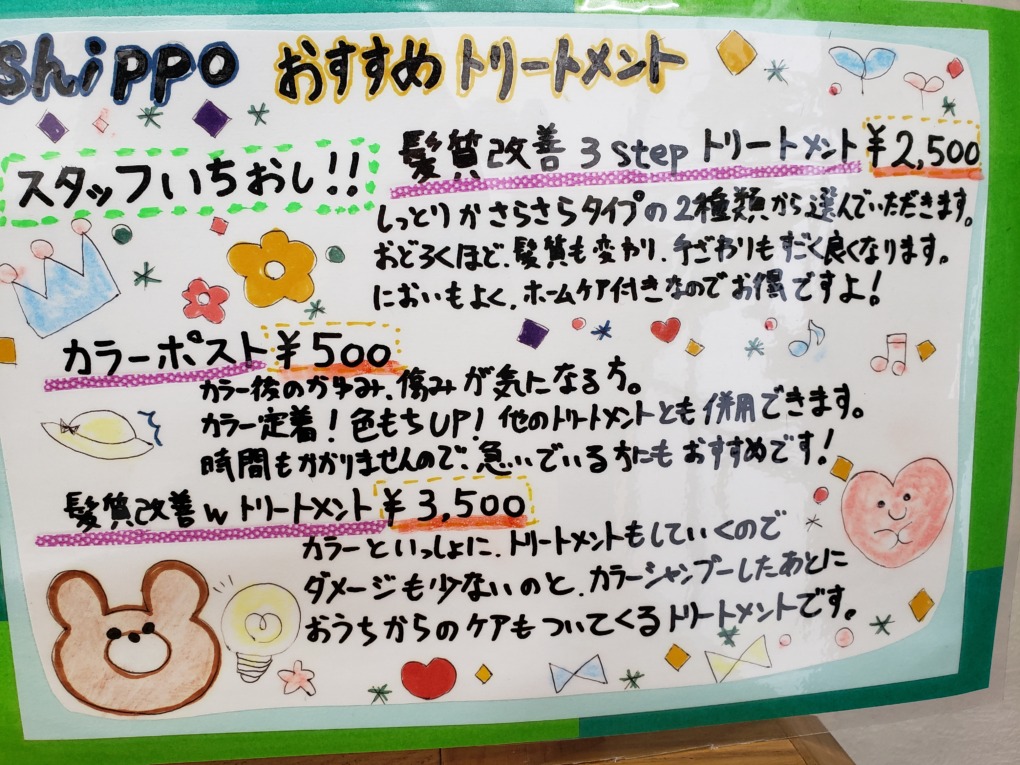 Shippo おすすめトリートメント
スタッフいちおし!!
髪質改善 3 step トリートメント ¥2,500
しっとりかさらさらタイプの2種類から選んでいただきます。
おどろくほど、髪質も変わり、手ざわりもすごく良くなります。
においもよく、ホームケア付きなのでお得ですよ!
カラーポスト ¥500
カラー後のかゆみ、傷みが気になる方。
カラー定着!色もちUP!他のトリートメントとも併用できます。
時間もかかりませんので、急いでいる方にもおすすめです!
髪質改善wトリートメント ¥3,500
カラーといっしょに、トリートメントもしていくので
ダメージも少ないのと、カラーシャンプーしたあとに
おうちからのケアもついてくるトリートメントです。